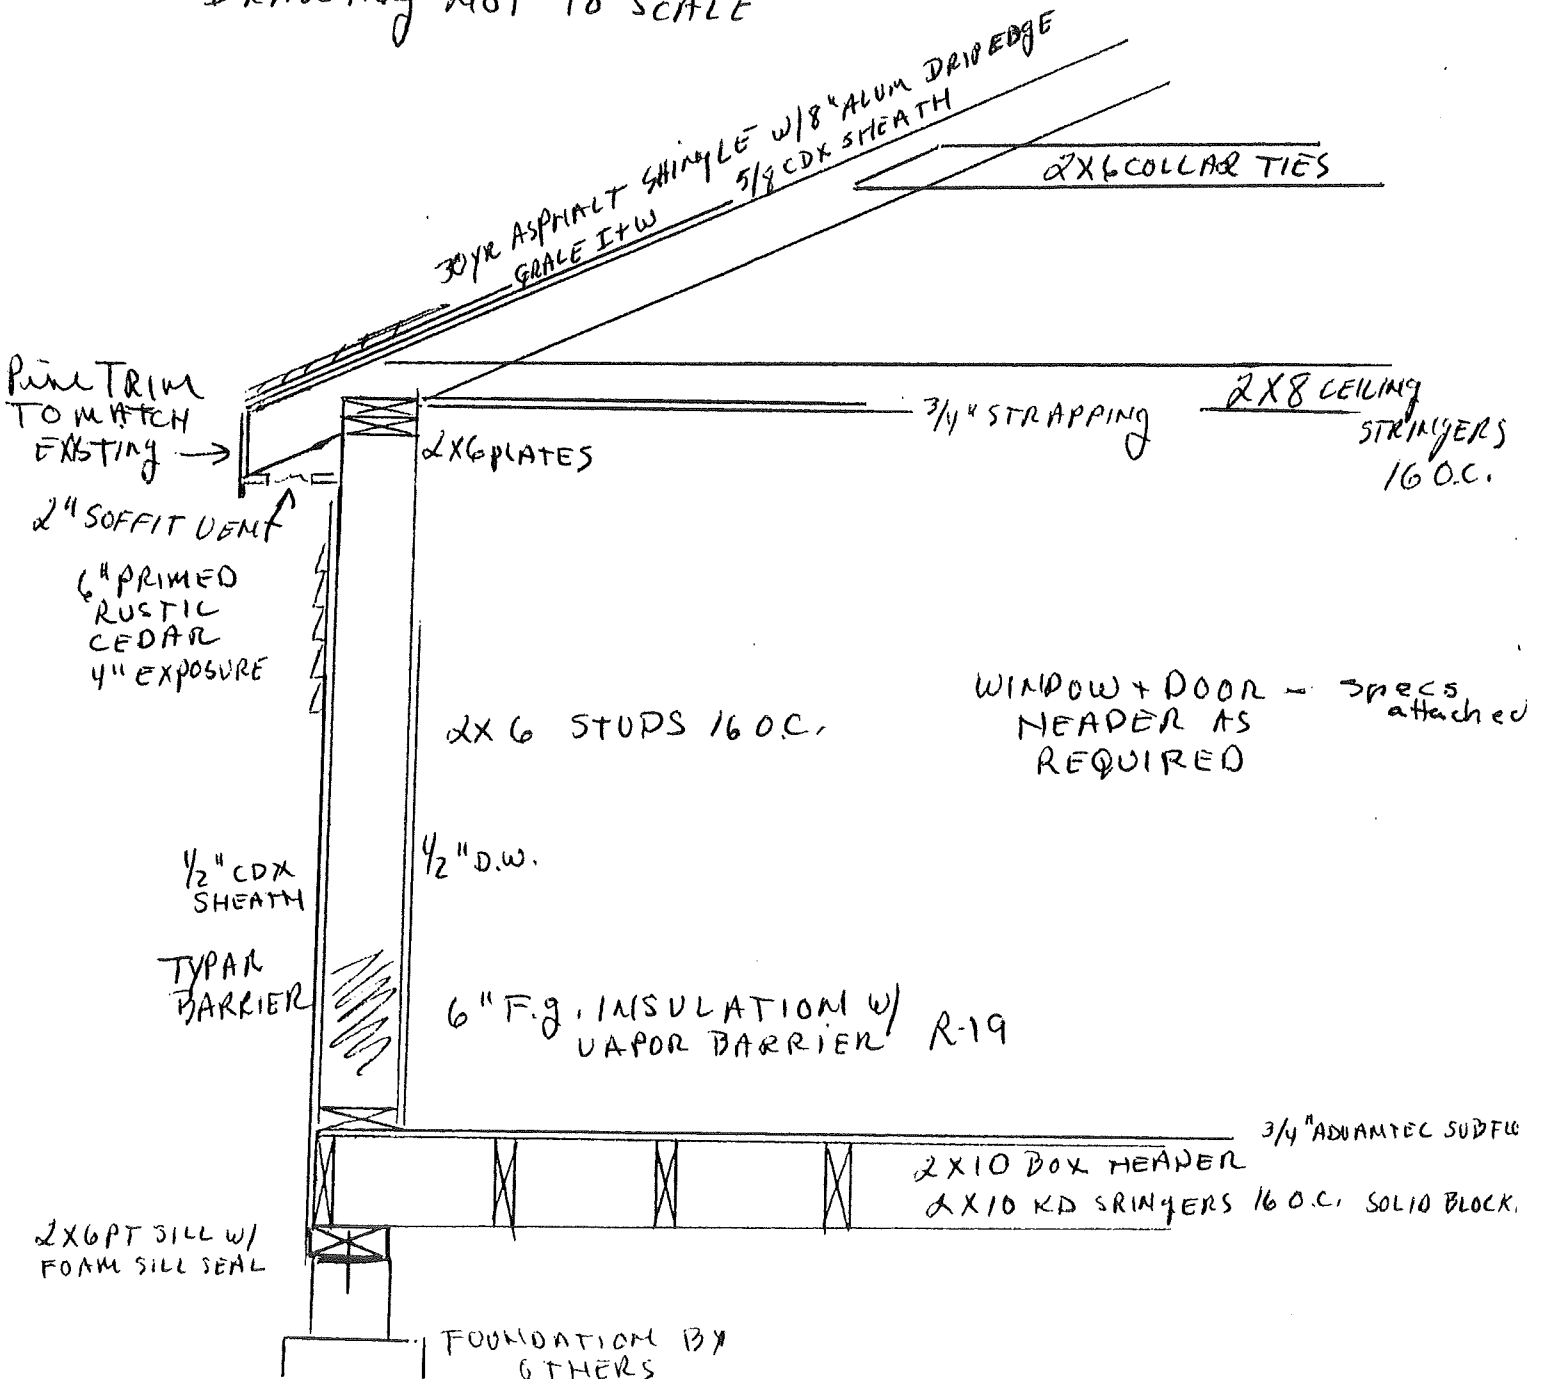 DRAWING NOT TO SCALE
30 YR ASPHALT SHINGLE W/8" ALUM DRIPEDGE
5/8 CDX SHEATH
GRALE I+W
2X6 COLLAR TIES
Pine TRIM
TO MATCH
EXISTING
2X8 CEILING
STRINGERS
16 O.C.
3/4" STRAPPING
2X6 PLATES
2" SOFFIT VENT
6" PRIMED
RUSTIC
CEDAR
4" EXPOSURE
WINDOW + DOOR - specs
attached
HEADER AS
REQUIRED
2X6 STUDS 16 O.C.
1/2" CDX
SHEATH
1/2" D.W.
TYPAR
BARRIER
6" F.g. INSULATION W/
VAPOR BARRIER R-19
3/4" ADVANTEC SUBFLO
2X10 BOX HEADER
2X10 KD SRINGERS 16 O.C. SOLID BLOCK.
2X6 PT SILL W/
FOAM SILL SEAL
FOUNDATION BY
OTHERS